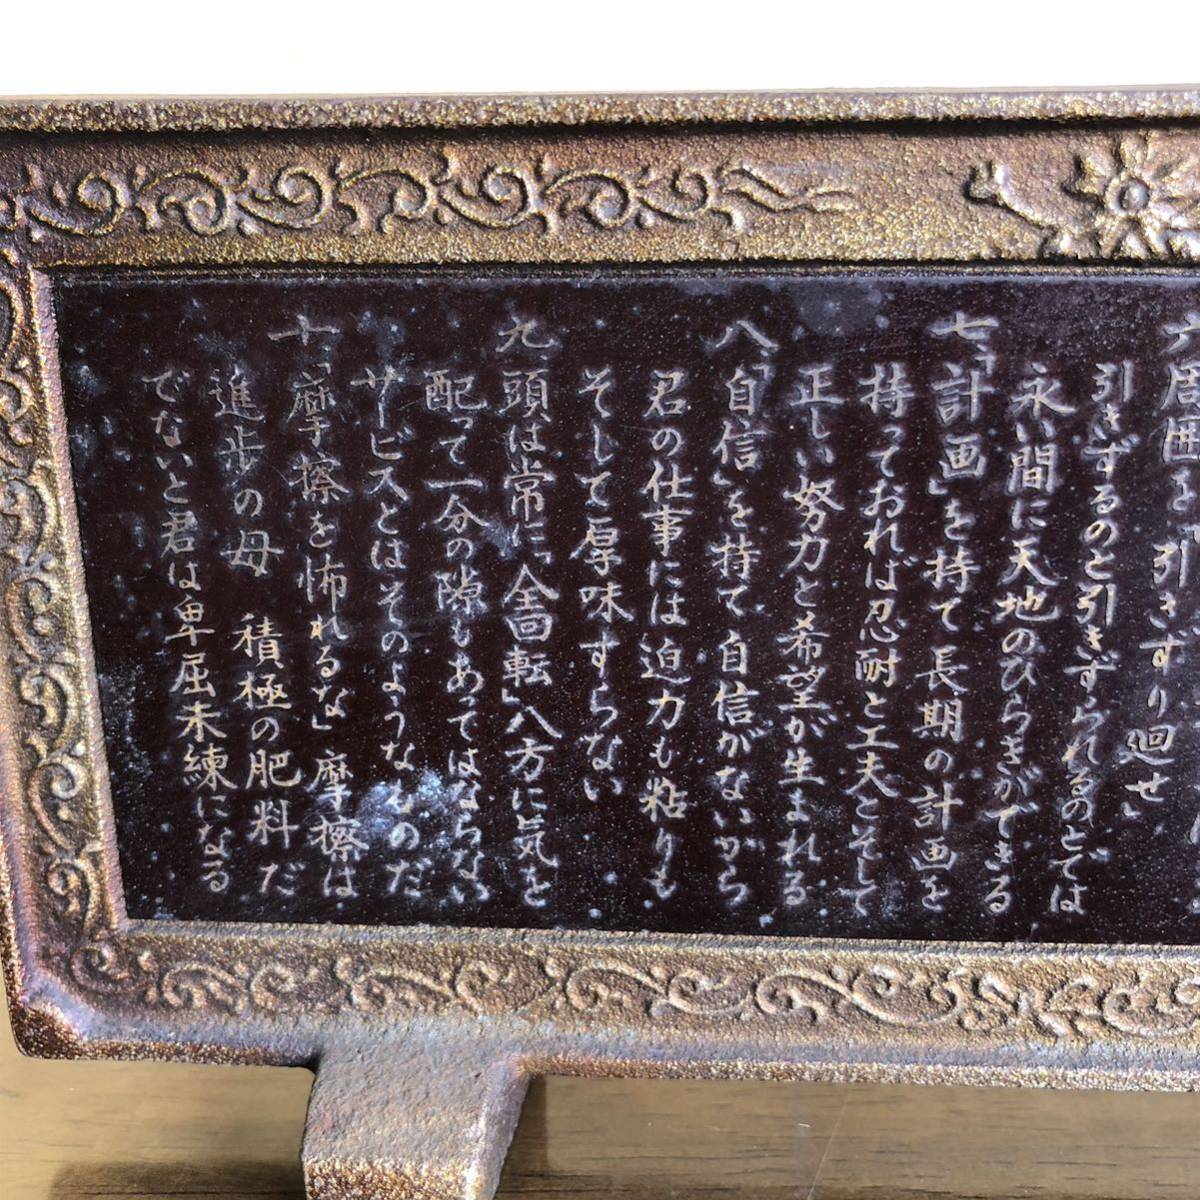 六、周囲を「引きずり廻せ」
引きずるのと引きずられるのとでは
永い間に天地のひらきができる
七、「計画」を持て 長期の計画を
持っておれば忍耐と工夫とそして
正しい努力と希望が生まれる
八、「自信」を持て 自信がないから
君の仕事には迫力も粘りも
そして厚味すらない
九、頭は常に「全回転」八方に気を
配って一分の隙もあってはならない
サービスとはそのようなものだ
十、「摩擦を怖れるな」摩擦は
進歩の母 積極の肥料だ
でないと君は卑屈未練になる